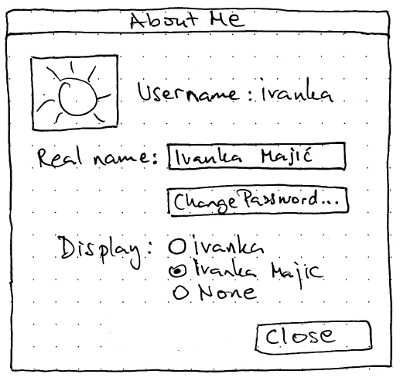 About Me
Username: ivanka
Real name: Ivanka Majić
Change Password...
Display: ivanka
Ivanka Majic
None
Close